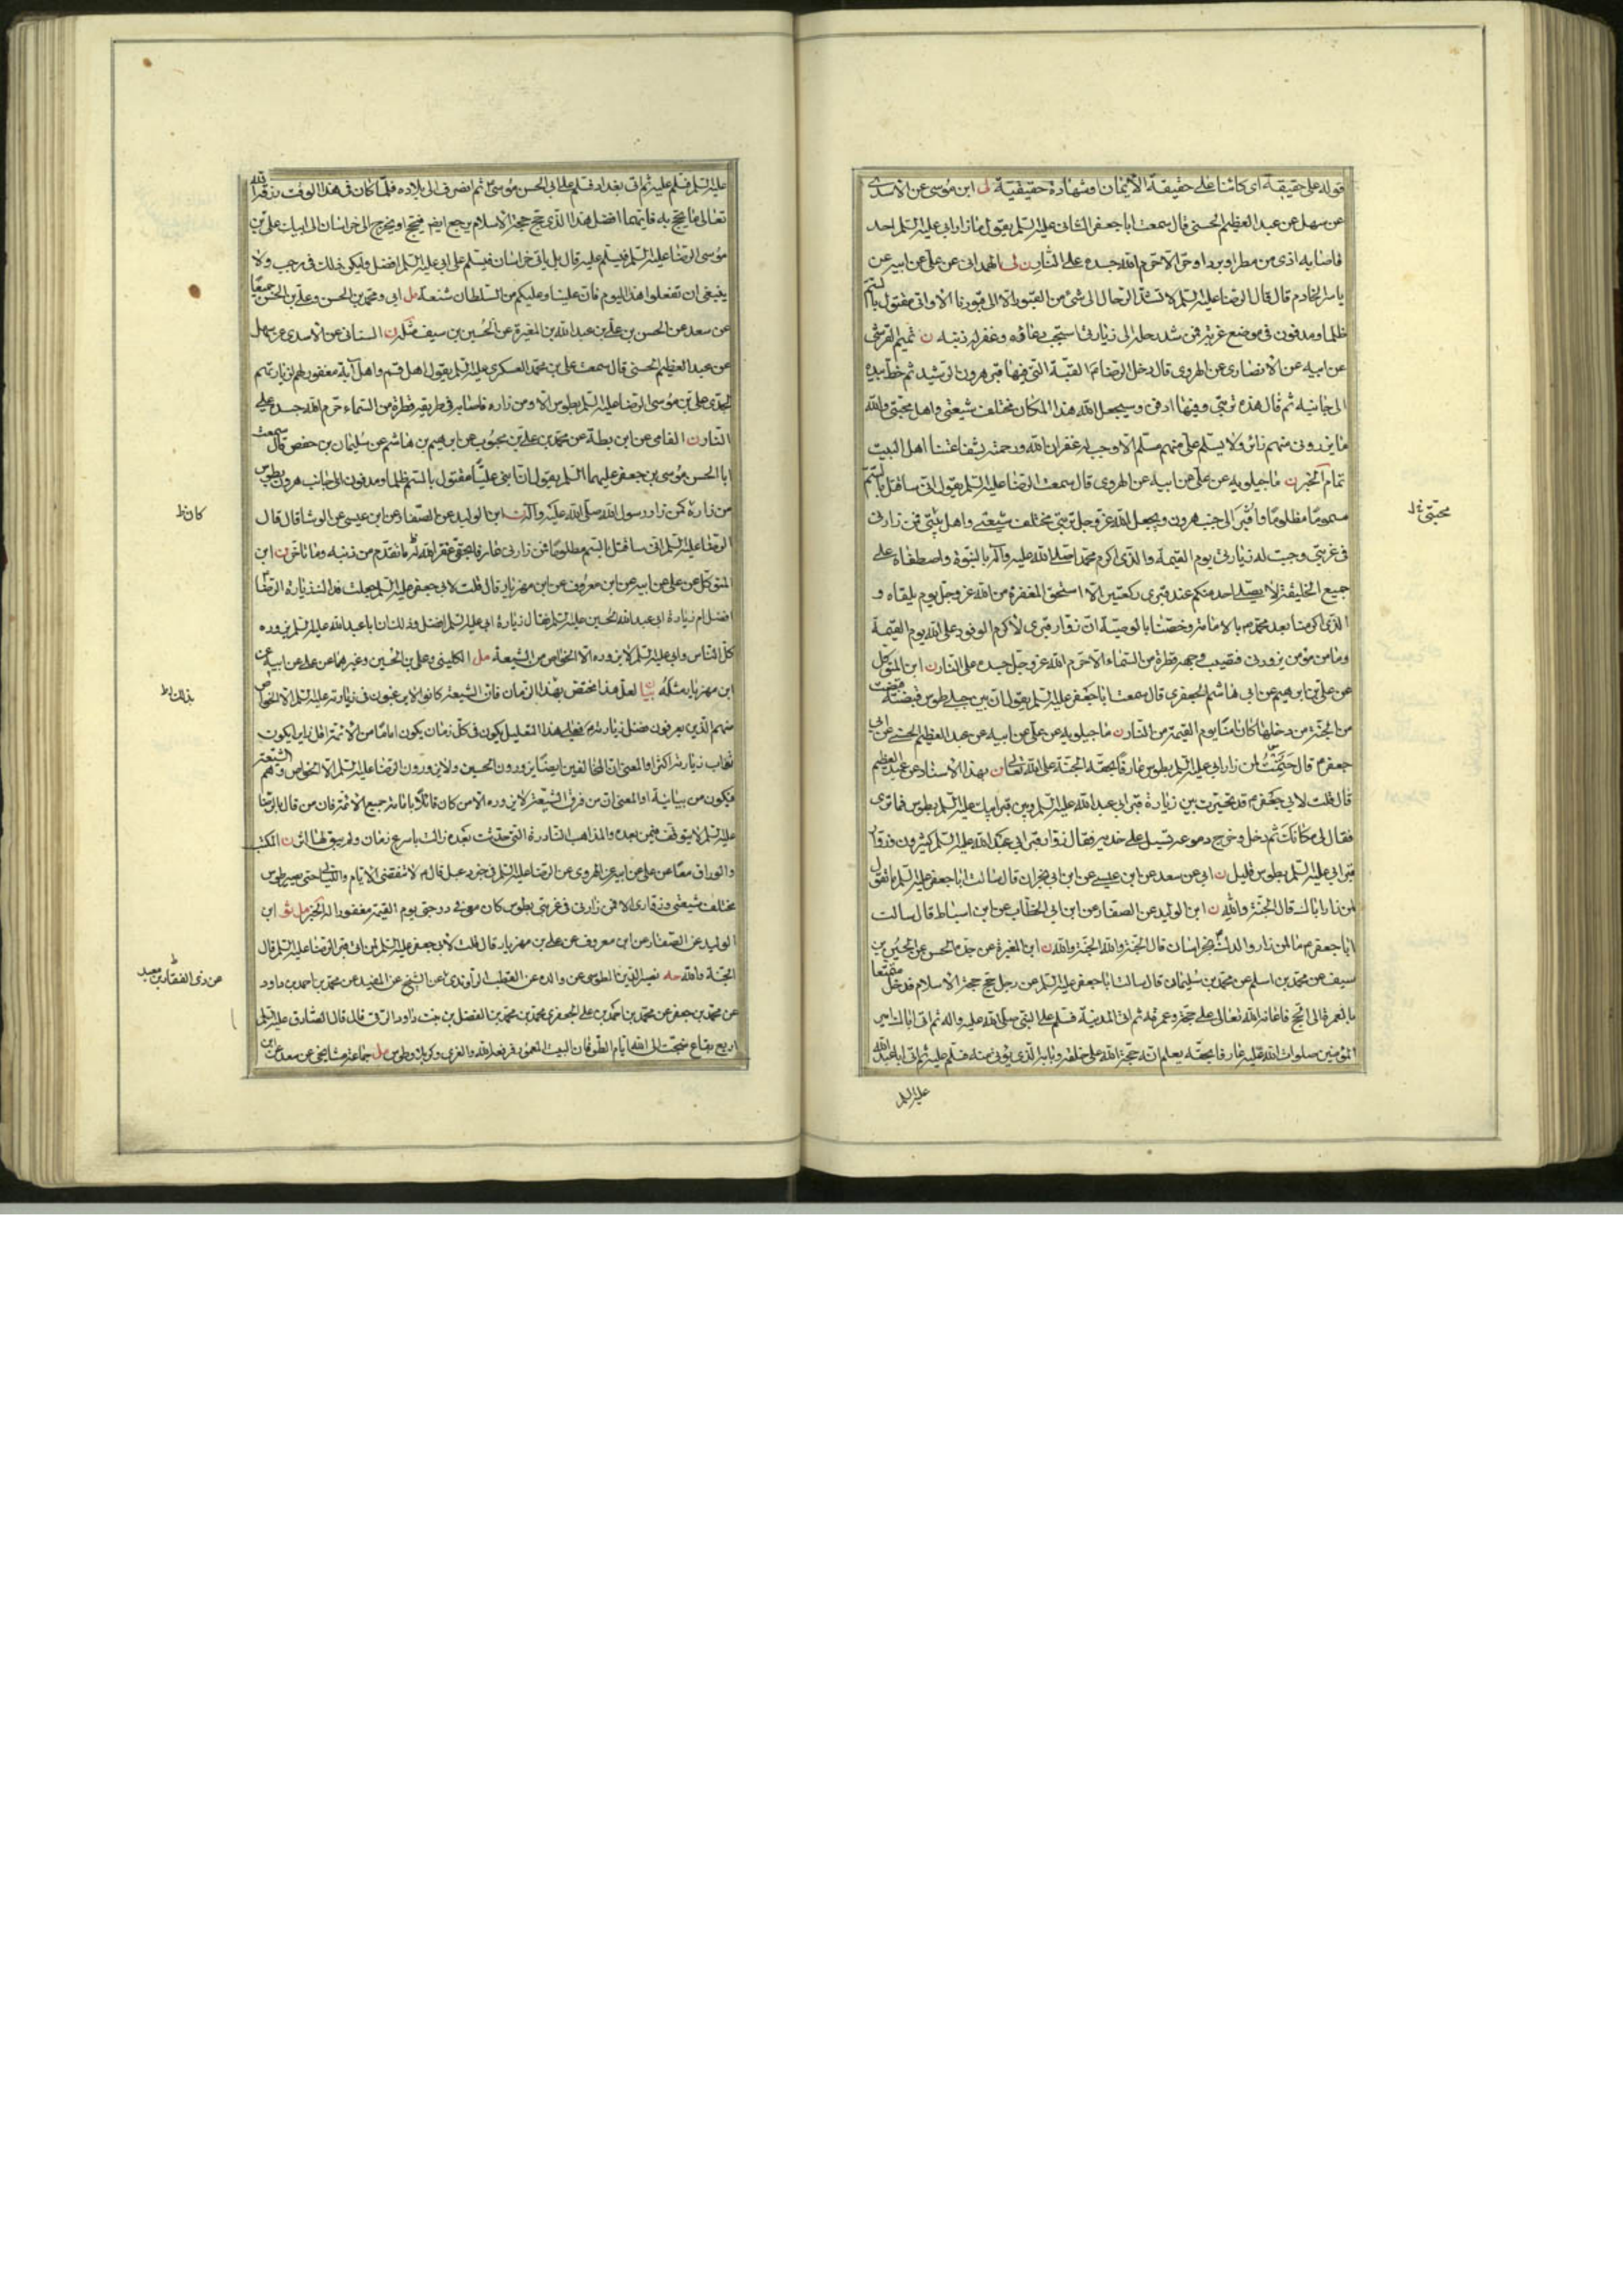 قوله على حقيقة اى كائنا على حقيقة الايمان او شهادة حقيقية لى ابن موسى عن الاسدى
عن سهل عن عبد العظيم الحسنى قال سمعت ابا جعفر الثانى عليه السلم يقول ما زار ابى عليه السلم احد
فاصابه اذى من مطر او برد او حر الا حرم الله جسده على النار ن لى الهمدانى عن على عن ابيه عن
ياسر الخادم قال قال الرضا عليه السلم لا تشد الرحال الى شئ من القبور الا الى قبورنا الا وانى مقتول بالسم
ظلما ومدفون فى موضع غربة فمن شد رحله الى زيارتى استجيب دعاؤه وغفر له ذنبه ن تميم القرشى
عن ابيه عن الانصارى عن الهروى قال دخل الرضا القبة التى فيها قبر هرون الرشيد ثم خط بيده
الى جانبه ثم قال هذه تربتى وفيها ادفن وسيجعل الله هذا المكان مختلف شيعتى واهل محبتى والله
ما يزورنى منهم زائر ولا يسلم على منهم مسلم الا وجب له غفران الله ورحمته بشفاعتنا اهل البيت
تمام الخبر ن ماجيلويه عن على عن ابيه عن الهروى قال سمعت الرضا عليه السلم يقول انى ساقتل بالسم
مسموما مظلوما واقبر الى جنب هرون ويجعل الله عز وجل تربتى مختلف شيعتى واهل بيتى فمن زارنى
محبتى خ ل
فى غربتى وجبت له زيارتى يوم القيمة والذى اكرم محمدا صلى الله عليه وآله بالنبوة واصطفاه على
جميع الخليقة لا يصلى احد منكم عند قبرى ركعتين الا استحق المغفرة من الله عز وجل يوم يلقاه و
الذى اكرمنا بعد محمد بالامامة وخصنا بالوصية ان زوار قبرى لاكرم الوفود على الله يوم القيمة
وما من مؤمن يزورنى فتصيب وجهه قطرة من السماء الا حرم الله عز وجل جسده على النار ن ابن المتوكل
عن على بن ابرهيم عن ابى هاشم الجعفرى قال سمعت ابا جعفر عليه السلم يقول ان بين جبلى طوس قبضة قبضت
من الجنة من دخلها كان آمنا يوم القيمة من النار ن ماجيلويه عن على عن ابيه عن عبد العظيم الحسنى عن ابى
جعفر قال حتمت لمن زار ابى عليه السلم بطوس عارفا بحقه الجنة على الله تعالى ن بهذا الاسناد عن عبد العظيم
قال قلت لابى جعفر قد تحيرت بين زيارة قبر ابى عبد الله عليه السلم وبين قبر ابيك عليه السلم بطوس فما ترى
فقال لى مكانك ثم دخل وخرج ودموعه تسيل على خديه فقال زوار قبر ابى عبد الله عليه السلم كثيرون وزوار
قبر ابى عليه السلم بطوس قليل ن ابى عن سعد عن ابن عيسى عن ابن ابى نجران قال سالت ابا جعفر عليه السلم ما تقول
لمن زار اباك قال الجنة والله ن ابن الوليد عن الصفار عن ابن ابى الخطاب عن ابن اسباط قال سالت
ابا جعفر ما لمن زار والدك بخراسان قال الجنة والله الجنة والله ن ابن المغيرة عن جده الحسن عن الحسين بن
سيف عن محمد بن اسلم عن محمد بن سليمان قال سالت ابا جعفر عليه السلم عن رجل حج حجة الاسلام فدخل متمتعا
بالعمرة الى الحج فاعانه الله تعالى على حجه وعمرته ثم اتى المدينة فسلم على النبى صلى الله عليه واله ثم اتى اباك امير
المؤمنين صلوات الله عليه عارفا بحقه يعلم انه حجة الله على خلقه وبابه الذى يؤتى منه فسلم عليه ثم اتى ابا عبد الله
عليه السلم
عليه السلم فسلم عليه ثم اتى بغداد فسلم على ابى الحسن موسى ثم انصرف الى بلاده فلما كان فى هذا الوقت رزقه الله
تعالى ما يحج به فايهما افضل هذا الذى حج حجة الاسلام يرجع ايضا فيحج او يخرج الى خراسان الى ابيك على بن
موسى الرضا عليه السلم فيسلم عليه قال بل ياتى خراسان فيسلم على ابى عليه السلم افضل وليكن ذلك فى رجب ولا
ينبغى ان تفعلوا هذا اليوم فان علينا وعليكم من السلطان شنعة مل ابى ومحمد بن الحسن وعلى بن الحسين جميعا
عن سعد عن الحسن بن على بن عبد الله بن المغيرة عن الحسين بن سيف مثله ن السنانى عن الاسدى عن سهل
عن عبد العظيم الحسنى قال سمعت على بن محمد العسكرى عليه السلم يقول اهل قم واهل آبة مغفور لهم لزيارتهم
لجدى على بن موسى الرضا عليه السلم بطوس الا ومن زاره فاصابه فى طريقه قطرة من السماء حرم الله جسده على
النار ن الفامى عن ابن بطة عن محمد بن على بن محبوب عن ابرهيم بن هاشم عن سليمان بن حفص قال سمعت
ابا الحسن موسى بن جعفر عليهما السلم يقول ان ابنى عليا مقتول بالسم ظلما ومدفون الى جانب هرون بطوس
من زاره كمن زار رسول الله صلى الله عليه وآله ن ابن الوليد عن الصفار عن ابن عيسى عن الوشا قال قال
كان ظ
الرضا عليه السلم انى ساقتل بالسم مظلوما فمن زارنى عارفا بحقى غفر الله له ما تقدم من ذنبه وما تاخر ن ابن
المتوكل عن على عن ابيه عن ابن معروف عن ابن مهزيار قال قلت لابى جعفر عليه السلم جعلت فداك زيارة الرضا
افضل ام زيارة ابى عبد الله الحسين عليه السلم فقال زيارة ابى عليه السلم افضل وذلك ان ابا عبد الله عليه السلم يزوره
كل الناس وابى عليه السلم لا يزوره الا الخواص من الشيعة مل الكلينى وعلى بن الحسين وغيرهما عن على عن ابيه عن
ابن مهزيار مثله بيان لعل هذا مختص بهذا الزمان فان الشيعة كانوا لا يرغبون فى زيارته عليه السلم الا الخواص
بذلك ظ
منهم الذين يعرفون فضل زيارته فعلى هذا التعليل يكون فى كل زمان يكون امام من الائمة اقل زايرا يكون
ثواب زيارته اكثر او المعنى ان المخالفين ايضا يزورون الحسين ولا يزورون الرضا عليه السلم الا الخواص وهم الشيعة
فيكون من بيانية او المعنى ان من فرق الشيعة لا يزوره الا من كان قائلا بامامة جميع الائمة فان من قال بالرضا
عليه السلم لا يتوقف فيمن بعده والمذاهب النادرة التى حدثت بعده زالت باسرع زمان ولم يبق لها اثر ن المكتب
والوراق معا عن على عن ابيه عن الهروى عن الرضا عليه السلم فى خبر دعبل قال لا تنقضى الايام والليالى حتى يصير طوس
مختلف شيعتى وزوارى الا فمن زارنى فى غربتى بطوس كان معى فى درجتى يوم القيمة مغفورا له الخبر مل ثو ابن
الوليد عن الصفار عن ابن معروف عن على بن مهزيار قال قلت لابى جعفر عليه السلم لمن اتى قبر الرضا عليه السلم قال
الجنة والله حه نصير الدين الطوسى عن والده عن القطب الراوندى عن الشيخ عن المفيد عن محمد بن احمد بن داود
عن ذى الفقار بن معبد ظ
عن محمد بن جعفر عن محمد بن احمد بن على الجعفرى محمد بن محمد بن الفضل بن بنت داود الرقى قال قال الصادق عليه السلم
اربع بقاع ضجت الى الله ايام الطوفان البيت المعمور فرفعه الله والغرى وكربلا وطوس مل جماعة مشايخى عن سعد عن ابن